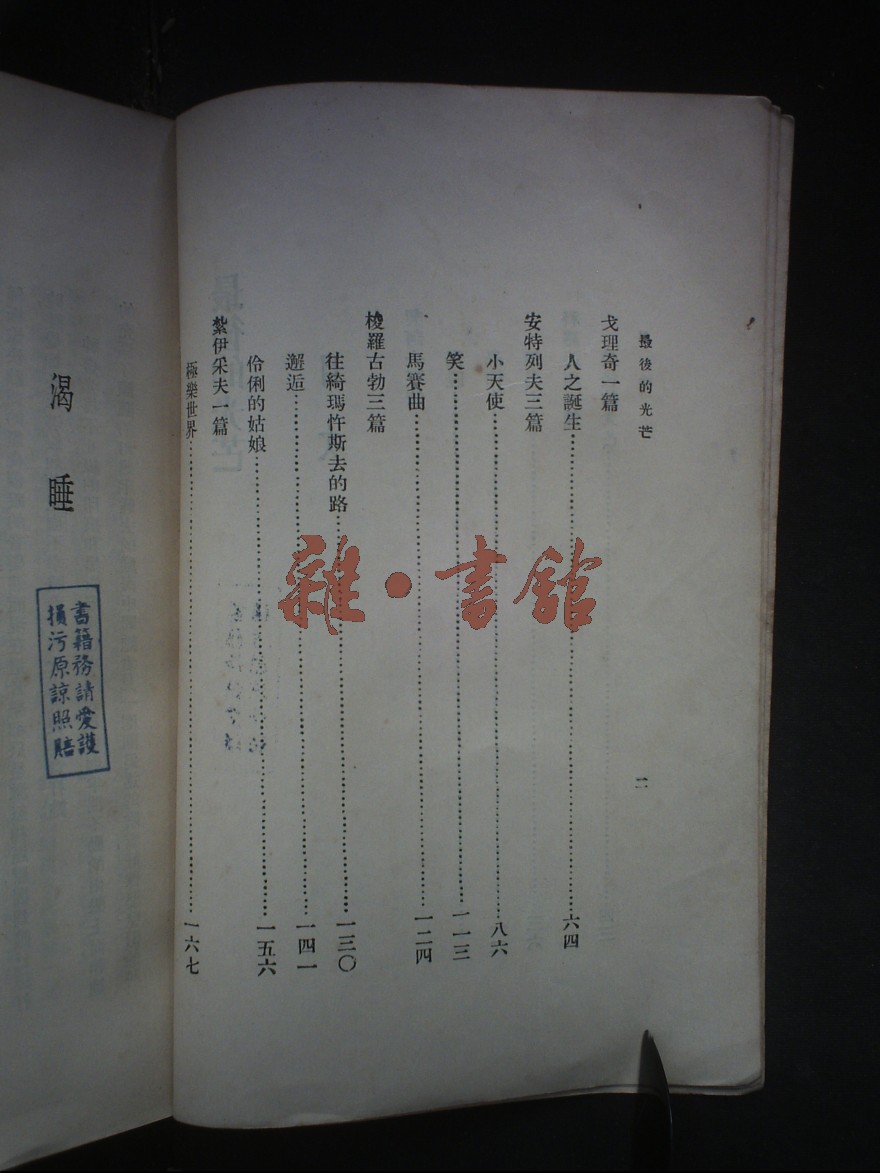 最後的光芒
二
戈理奇一篇
人之誕生……六四
安特列夫三篇
小天使……八六
笑……一一三
馬賽曲……一二四
梭羅古勃三篇
往綺瑪忤斯去的路……一三〇
邂逅……一四一
伶俐的姑娘……一五六
紮伊采夫一篇
極樂世界……一六七
雜·書館
渴睡
書籍務請愛護
損污原諒照賠